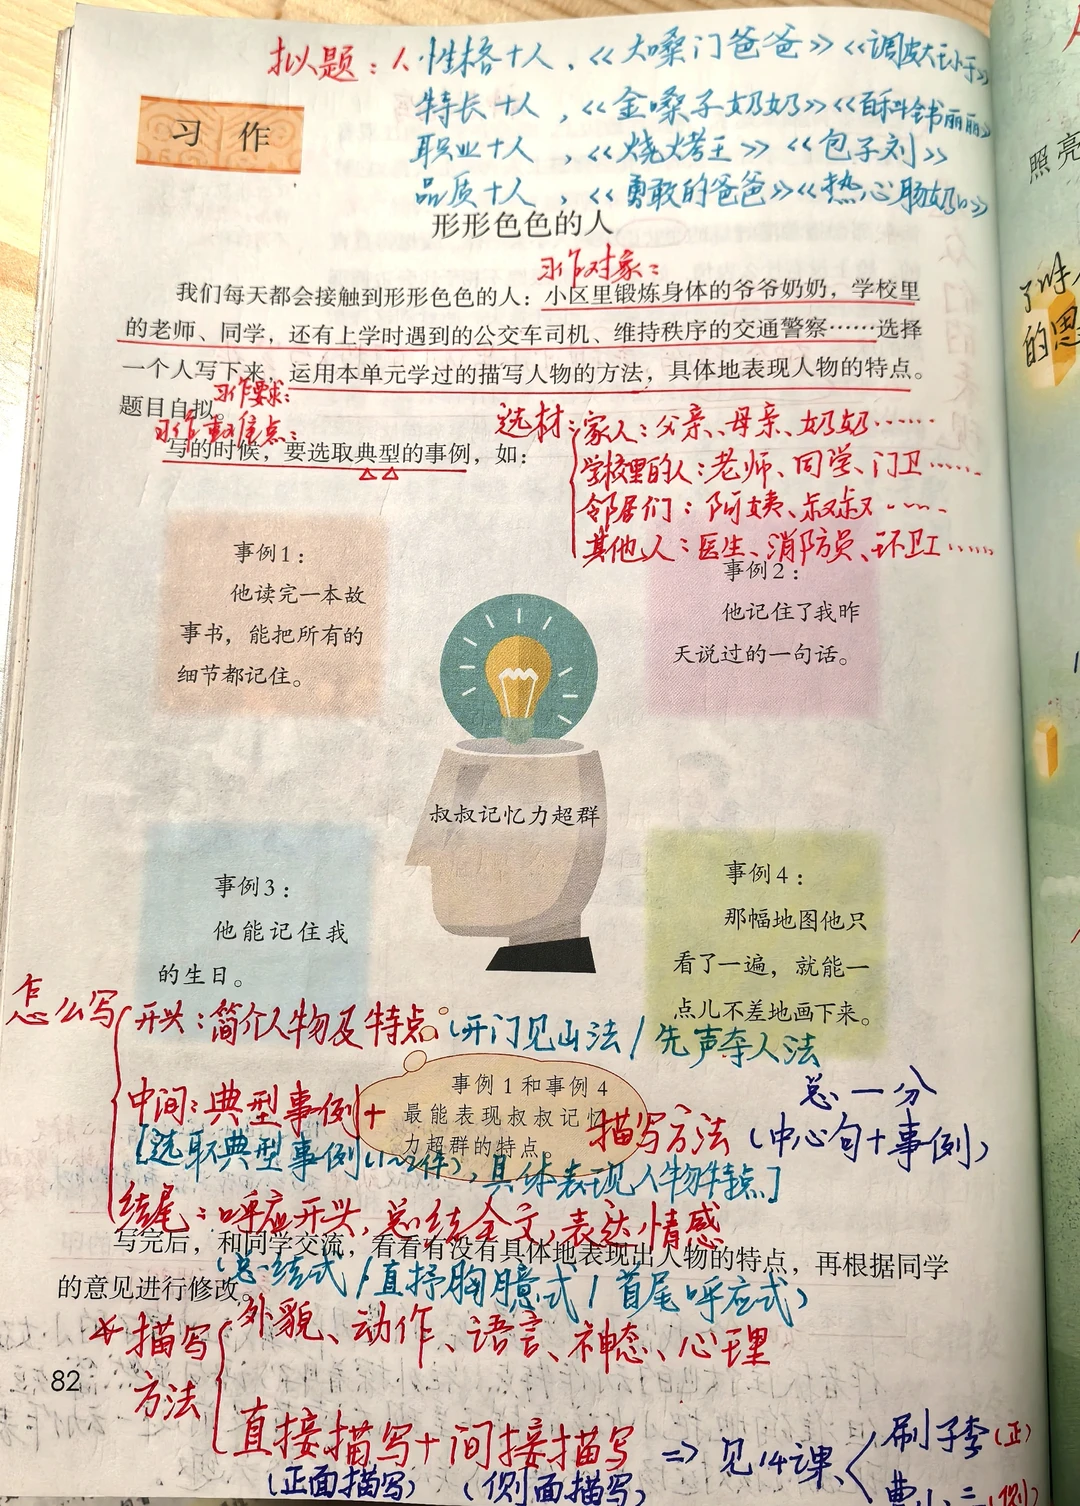 拟题：1、性格十人，《大嗓门爸爸》《调皮大王小于》
特长十人，《金嗓子奶奶》《百科全书丽丽》
职业十人，《烧烤王》《包子刘》
品质十人，《勇敢的爸爸》《热心肠奶奶》
习作
形形色色的人
习作对象：
我们每天都会接触到形形色色的人：小区里锻炼身体的爷爷奶奶，学校里
的老师、同学，还有上学时遇到的公交车司机、维持秩序的交通警察……选择
一个人写下来，运用本单元学过的描写人物的方法，具体地表现人物的特点。
习作要求：
题目自拟。
习作重点：
写的时候，要选取典型的事例，如：
选材：家人：父亲、母亲、奶奶……
学校里的人：老师、同学、门卫……
邻居们：阿姨、叔叔……
其他人：医生、消防员、环卫工……
事例1：
他读完一本故
事书，能把所有的
细节都记住。
事例2：
他记住了我昨
天说过的一句话。
叔叔记忆力超群
事例3：
他能记住我
的生日。
事例4：
那幅地图他只
看了一遍，就能一
点儿不差地画下来。
怎么写
开头：简介人物及特点（开门见山法/先声夺人法
事例1和事例4
最能表现叔叔记忆
力超群的特点。
中间：典型事例+描写方法（中心句十事例）
总一分
[选取典型事例（1~2件），具体表现人物特点]
结尾：呼应开头，总结全文，表达情感
写完后，和同学交流，看看有没有具体地表现出人物的特点，再根据同学
的意见进行修改。
（总结式/直抒胸臆式/首尾呼应式）
描写
方法
外貌、动作、语言、神态、心理
直接描写+间接描写
（正面描写）（侧面描写）
⇒见14课
刷子李（正）
曹小三（侧）
82
照亮
的思